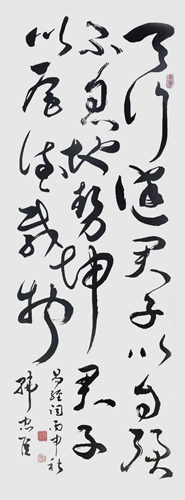 天行健君子以自强
不息地势坤君子
以厚德载物
易經词丙申秋